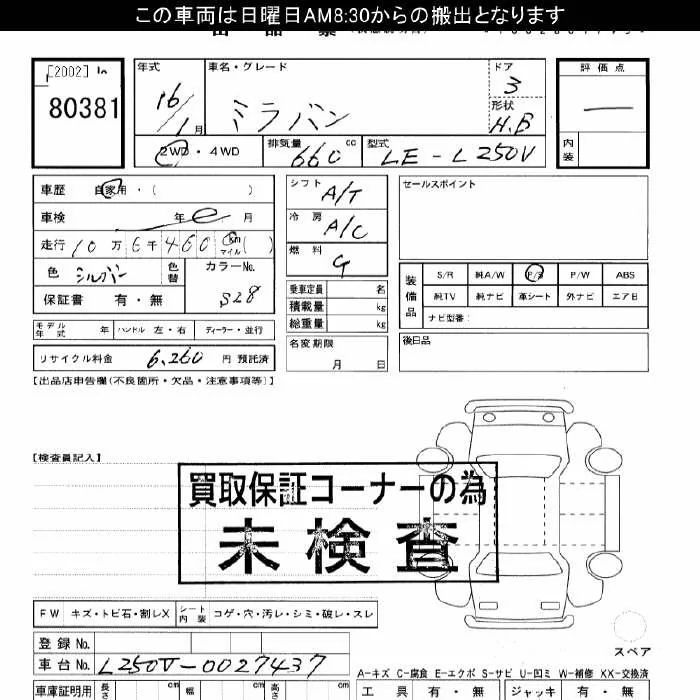 この車両は日曜日AM8:30からの搬出となります
[2002]
80381
年式
16/1月
車名・グレード
ミラバン
ドア
3
形状
H.B
評価点
―
内装
2WD・4WD
排気量
660 cc
型式
LE-L250V
車歴 自家用・( )
車検 年 月
走行 10万6千460 km マイル ( )
色 シルバー 色替
カラーNo.
S28
保証書 有・無
シフト A/T
冷房 A/C
燃料 G
乗車定員 名
積載量 kg
総重量 kg
名変期限
月 日
セールスポイント
装備品
S/R 純A/W P/S P/W ABS
純TV 純ナビ 革シート 外ナビ エアB
ナビ型番:
後日品
モデル年式 年 ハンドル 左・右 ディーラー・並行
リサイクル料金 6,260 円 預託済
[出品店申告欄(不良箇所・欠品・注意事項等)]
[検査員記入]
買取保証コーナーの為
未検査
FW キズ・トビ石・割レX シート内装 コゲ・穴・汚レ・シミ・破レ・スレ
スペア
登録No.
車台No. L250V-0027437
A-キズ C-腐食 E-エクボ S-サビ U-凹ミ W-補修 XX-交換済
車庫証明用 長さ cm 幅 cm 高さ cm
工具 有・無 ジャッキ 有・無